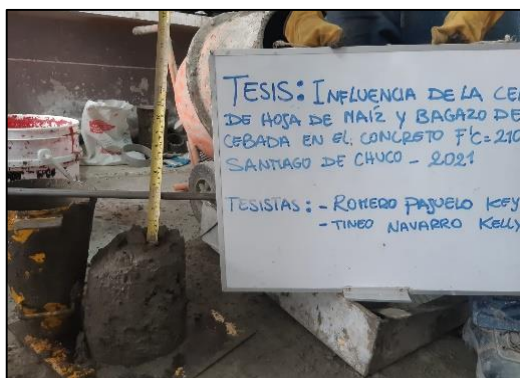 TESIS: INFLUENCIA DE LA CE
DE HOJA DE MAÍZ Y BAGAZO DE
CEBADA EN EL CONCRETO F'C=210
SANTIAGO DE CHUCO - 2021
TESISTAS: - ROMERO PAJUELO KEY
- TINEO NAVARRO KELLY